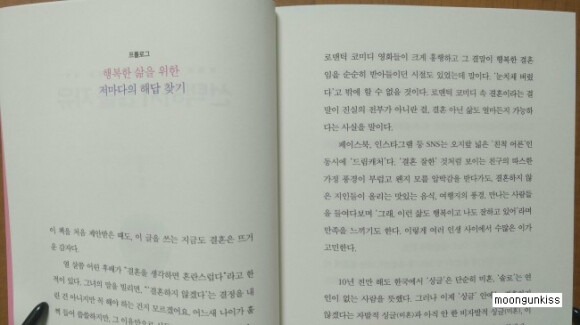 프롤로그
행복한 삶을 위한
저마다의 해답 찾기
이 책을 처음 제안받은 해도, 이 글을 쓰는 지금도 결혼은 뜨거
운 감자다.
열 살쯤 어린 후배가 "결혼을 생각하면 혼란스럽다"라고 한
적이 있다. 그녀의 말을 빌리면, "'결혼하지 않겠다'는 결정을 내
린 건 아니지만 꼭 해야 하는 건지 모르겠어요. 어느새 나이가 훌
로맨틱 코미디 영화들이 크게 흥행하고 그 결말이 행복한 결혼
임을 순순히 받아들이던 시절도 있었는데 말이다. '눈치채 버렸
다'고 밖에 할 수 없을 것이다. 로맨틱 코미디 속 결혼이라는 결
말이 진실의 전부가 아니란 걸, 결혼 아닌 삶도 얼마든지 가능하
다는 사실을 말이다.
페이스북, 인스타그램 등 SNS는 오지랖 넓은 '친척 어른'인
동시에 '드림캐처'다. '결혼 잘한' 것처럼 보이는 친구의 따스한
가정 풍경이 부럽고 왠지 모를 압박감을 받다가도, 결혼하지 않
은 지인들이 올리는 맛있는 음식, 여행지의 풍경, 만나는 사람들
을 들여다보며 '그래, 이런 삶도 행복이고 나도 잘하고 있어'라며
만족을 느끼기도 한다. 이렇게 여러 인생 사이에서 수많은 이가
고민한다.
10년 전만 해도 한국에서 '싱글'은 단순히 미혼, '솔로'는 연
인이 없는 사람을 뜻했다. 그러나 이제 '싱글' 안에
않겠다는 자발적 싱글(비혼),
moongunkiss